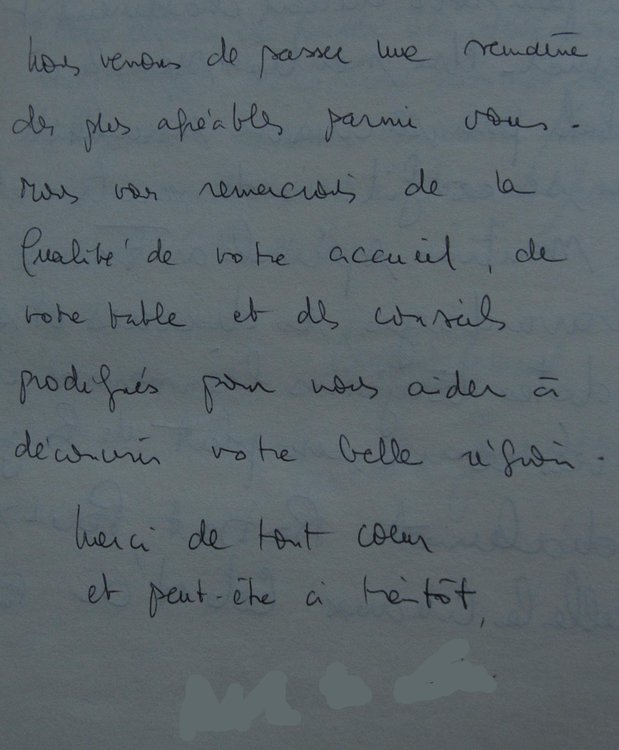 Nous venons de passer une semaine
des plus agréables parmi vous.
Nous vous remercions de la
qualité de votre accueil, de
votre table et des conseils
prodigués pour nous aider à
découvrir votre belle région.
Merci de tout coeur
et peut-être à bientôt,